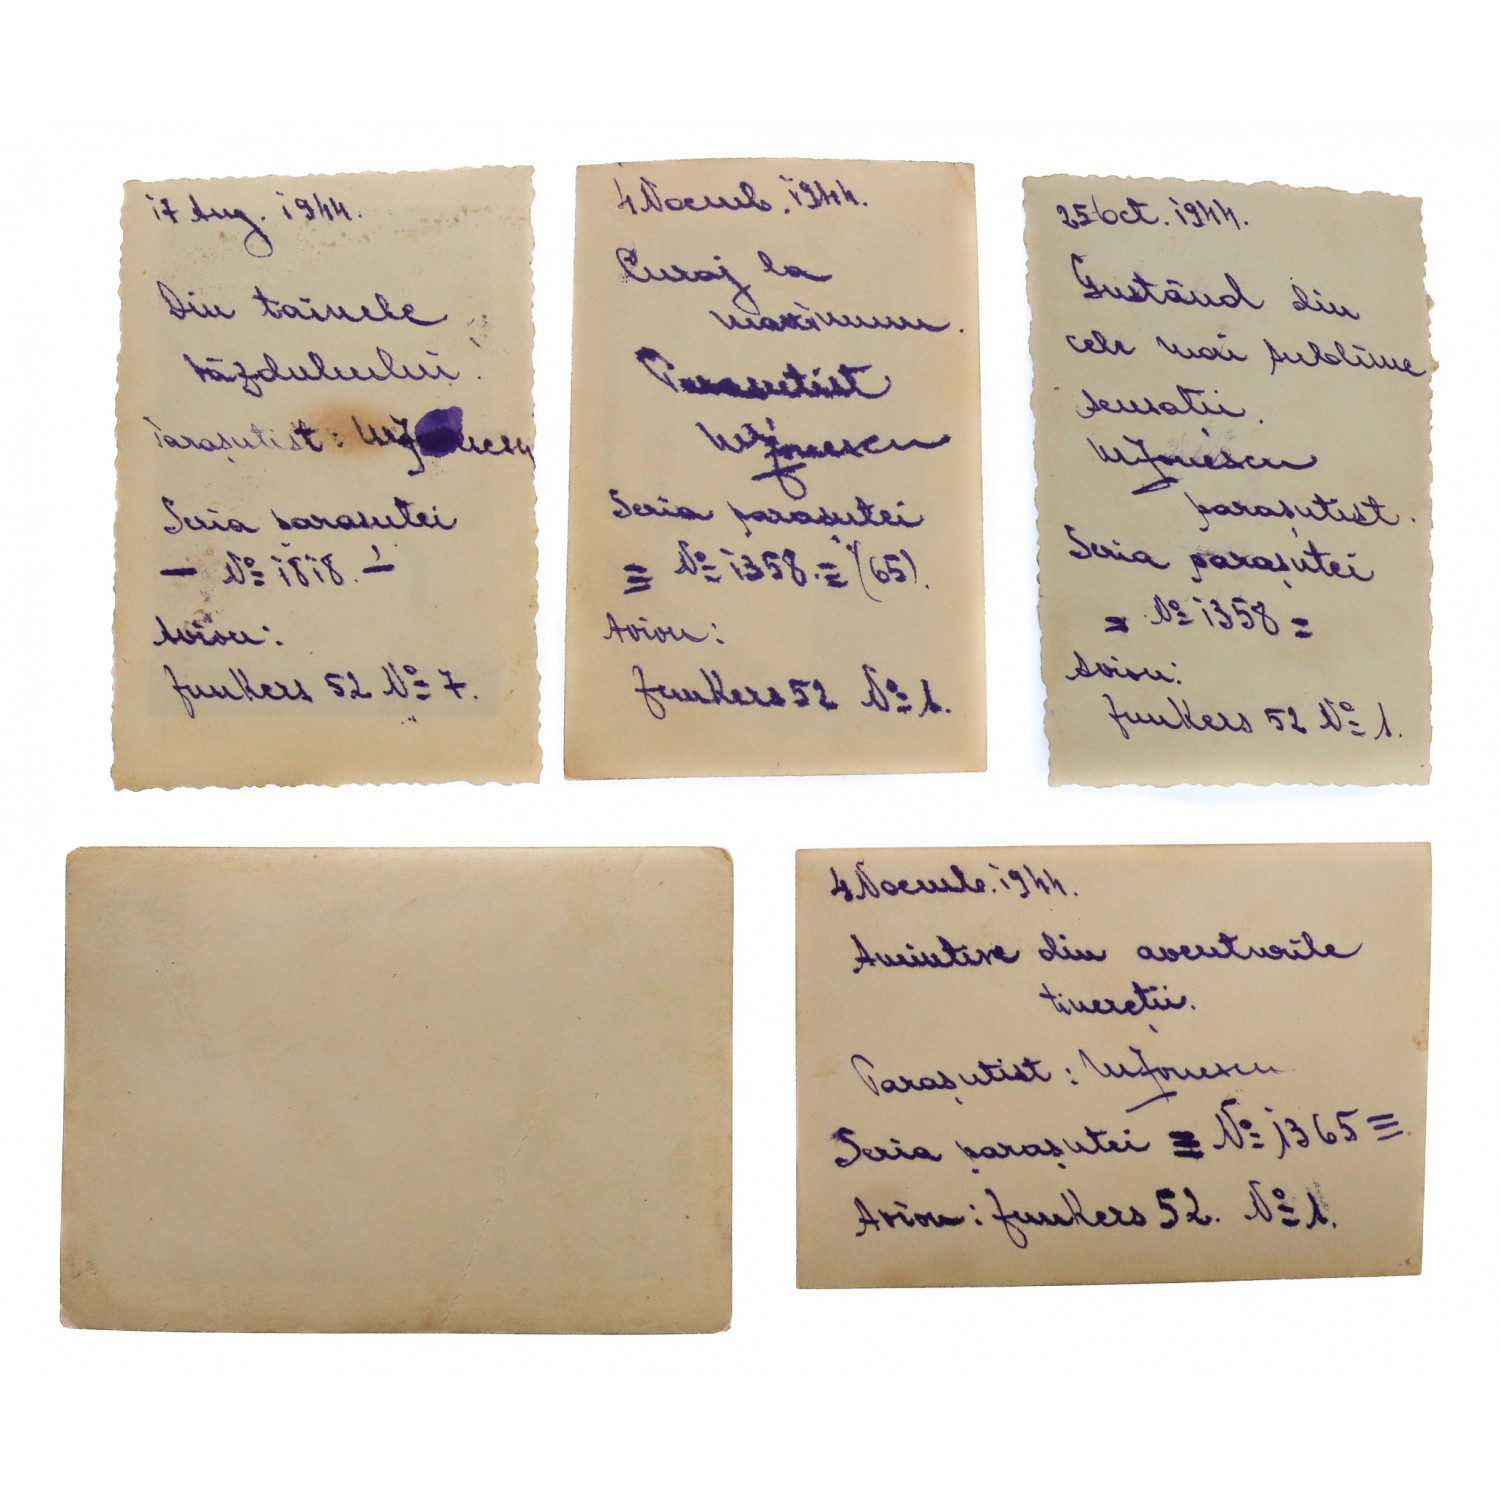 17 Aug. 1944.
Din tainele
văzduhului.
Parașutist: Ionescu
Seria parașutei
— Nº 1818. —
Avion:
Junkers 52 Nº 7.
4 Noemb. 1944.
Curaj la
maximum.
Parașutist
Ionescu
Seria parașutei
= Nº 1358. = (65).
Avion:
Junkers 52 Nº 1.
25 Oct. 1944.
Gustând din
cele mai sublime
sensații.
Ionescu
parașutist.
Seria parașutei
= Nº 1358 =
Avion:
Junkers 52 Nº 1.
4 Noemb. 1944.
Amintire din aventurile
tinereții.
Parașutist: Ionescu
Seria parașutei = Nº 1365 =
Avion: Junkers 52. Nº 1.